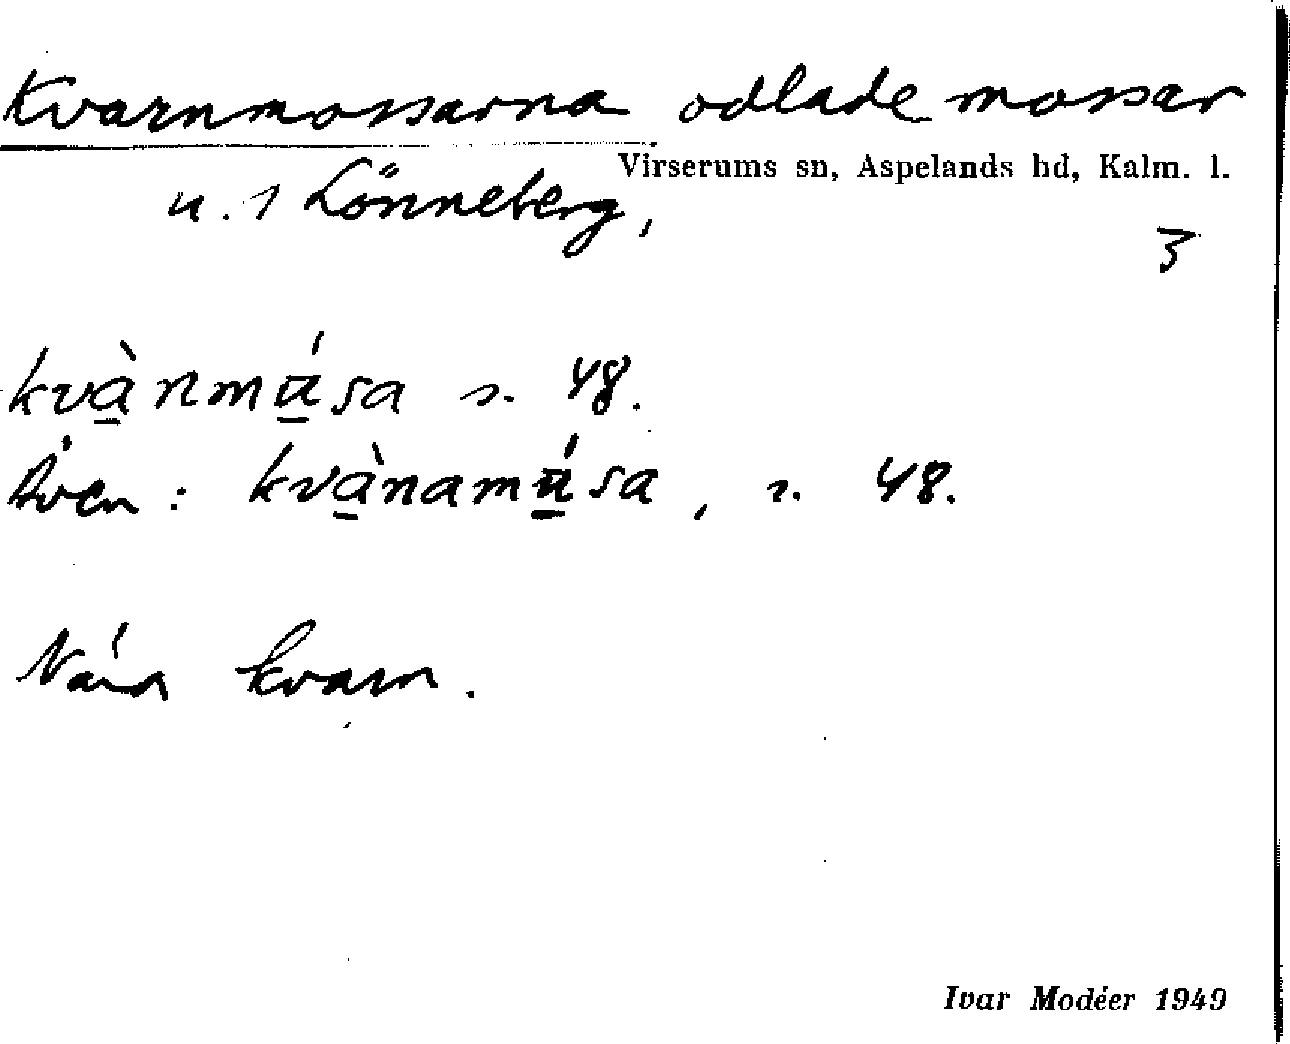 Kvarnmossarna odlade mossar
Virserums sn, Aspelands hd, Kalm. l.
u. 1 Lönneberg,
3
kvànmúsa s. 48.
Även: kvànamúsa, s. 48.
Nära kvarn.
Ivar Modéer 1949